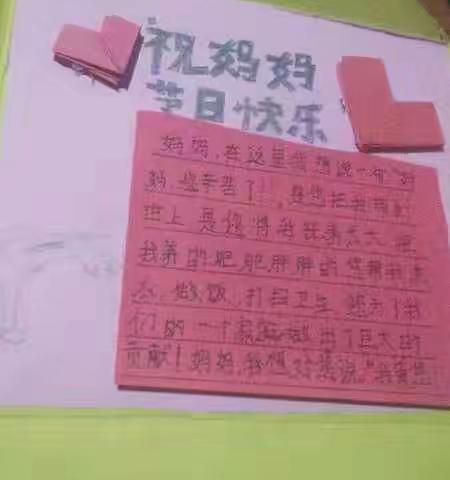 祝妈妈
节日快乐
妈妈，在这里我想说一句：妈
妈，您辛苦了！是您把我带到
世上 是您将我抚养长大 把
我养的肥肥胖胖的 您帮我洗
衣、做饭、打扫卫生 您为了我
们的一个家庭做出了巨大的
贡献！妈妈，我想对您说，"我爱您